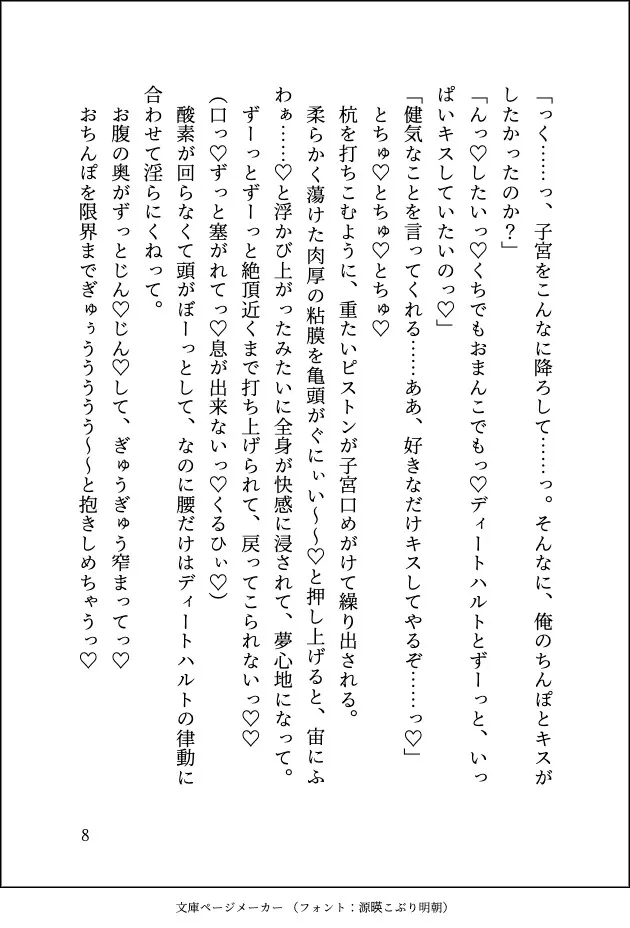 「っく……っ、子宮をこんなに降ろして……っ。そんなに、俺のちんぽとキスが
したかったのか？」
「んっ♡したいっ♡くちでもおまんこでもっ♡ディートハルトとずーっと、いっ
ぱいキスしていたいのっ♡」
「健気なことを言ってくれる……ああ、好きなだけキスしてやるぞ……っ♡」
とちゅ♡とちゅ♡とちゅ♡
杭を打ちこむように、重たいピストンが子宮口めがけて繰り出される。
柔らかく蕩けた肉厚の粘膜を亀頭がぐにぃい～～♡と押し上げると、宙にふ
わぁ……♡と浮かび上がったみたいに全身が快感に浸されて、夢心地になって。
ずーっとずーっと絶頂近くまで打ち上げられて、戻ってこられないっ♡♡
（口っ♡ずっと塞がれてっ♡息が出来ないっ♡くるひぃ♡）
酸素が回らなくて頭がぼーっとして、なのに腰だけはディートハルトの律動に
合わせて淫らにくねって。
お腹の奥がずっとじん♡じん♡して、ぎゅうぎゅう窄まってっ♡
おちんぽを限界までぎゅぅうううう～～と抱きしめちゃうっ♡
8
文庫ページメーカー （フォント：源暎こぶり明朝）